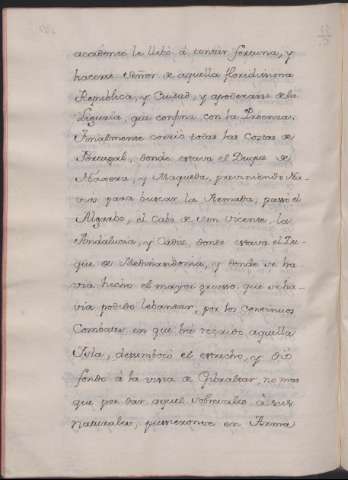 accidente le llebó á tentar fortuna, y
hacerse Señor de aquella floridissima
Republica, y Ciudad, y apoderarse de la
Liguria, que confina con la Provenza.
Finalmente corrió todas las Costas de
Portugal, donde estava el Duque de
Naxera, y Maqueda, previniendo Na-
vios para buscar la Armada, passó el
Algarbe, el Cabo de San Vicente, la
Andalucia, y Cadiz, donde estava el Du-
que de Medinasidonia, y donde se ha-
via hecho el mayor gruesso, que se ha-
via podido lebantar, por los continuos
Combates en que há tenido aquella
Isla, desembocó el estrecho, y dió
fondo á la vista de Gibraltar, no mas
que por dar aquel sobresalto á sus
naturales, pusieronse en Arma